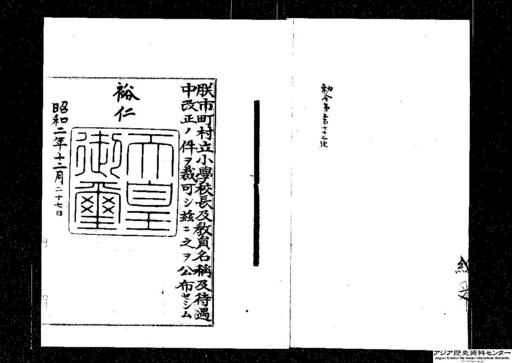 朕市町村立小學校長及敎員名稱及待遇
中改正ノ件ヲ裁可シ茲ニ之ヲ公布セシム
裕仁
天皇御璽
昭和二年十二月二十七日
アジア歴史資料センター
Japan Center for Asian Historical Records